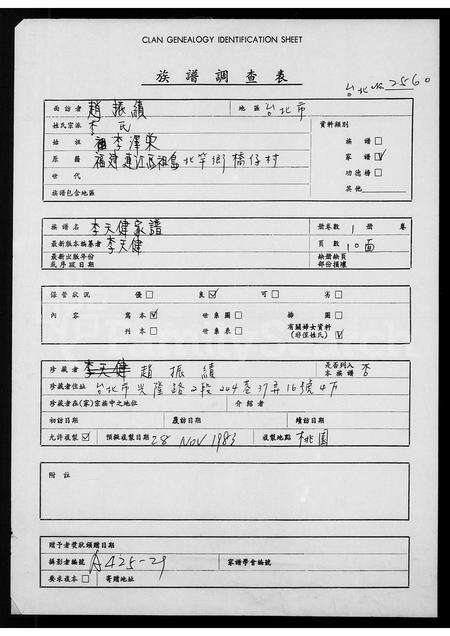 CLAN GENEALOGY IDENTIFICATION SHEET
族譜調查表
台北 No 2560
面訪者 趙振績 地區 台北市
姓氏宗派 李氏 資料類別
始祖 李澤榮 族譜□
原籍 福建連江馬祖島北竿鄉橋仔村 家譜☑
世代 功德榜□
族譜包含地區 其他
族譜名 李天健家譜 冊卷數 1 冊 卷
最新版本編纂者 李天健 頁數 10面
最新出版年份 缺冊缺頁
或序跋日期 部份損壞
保管狀況 優□ 良☑ 可□ 劣□
內容 寫本☑ 世系圖□ 插圖□
刊本□ 世系表□ 有關婦女資料
(非僅姓氏) ☑
珍藏者 李天健 趙振績 是否列入
本族譜 否
珍藏者住址 台北市興隆路2段244巷37弄16號4F
珍藏者在(家)宗族中之地位 介紹者
初訪日期 覆訪日期 續訪日期
允許複製☑ 預擬複製日期 28 NOV 1983 複製地點 桃園
附註
贈予者獎狀頒贈日期
攝影者編號 A425-29 家譜學會編號
要求複本□ 寄贈地址